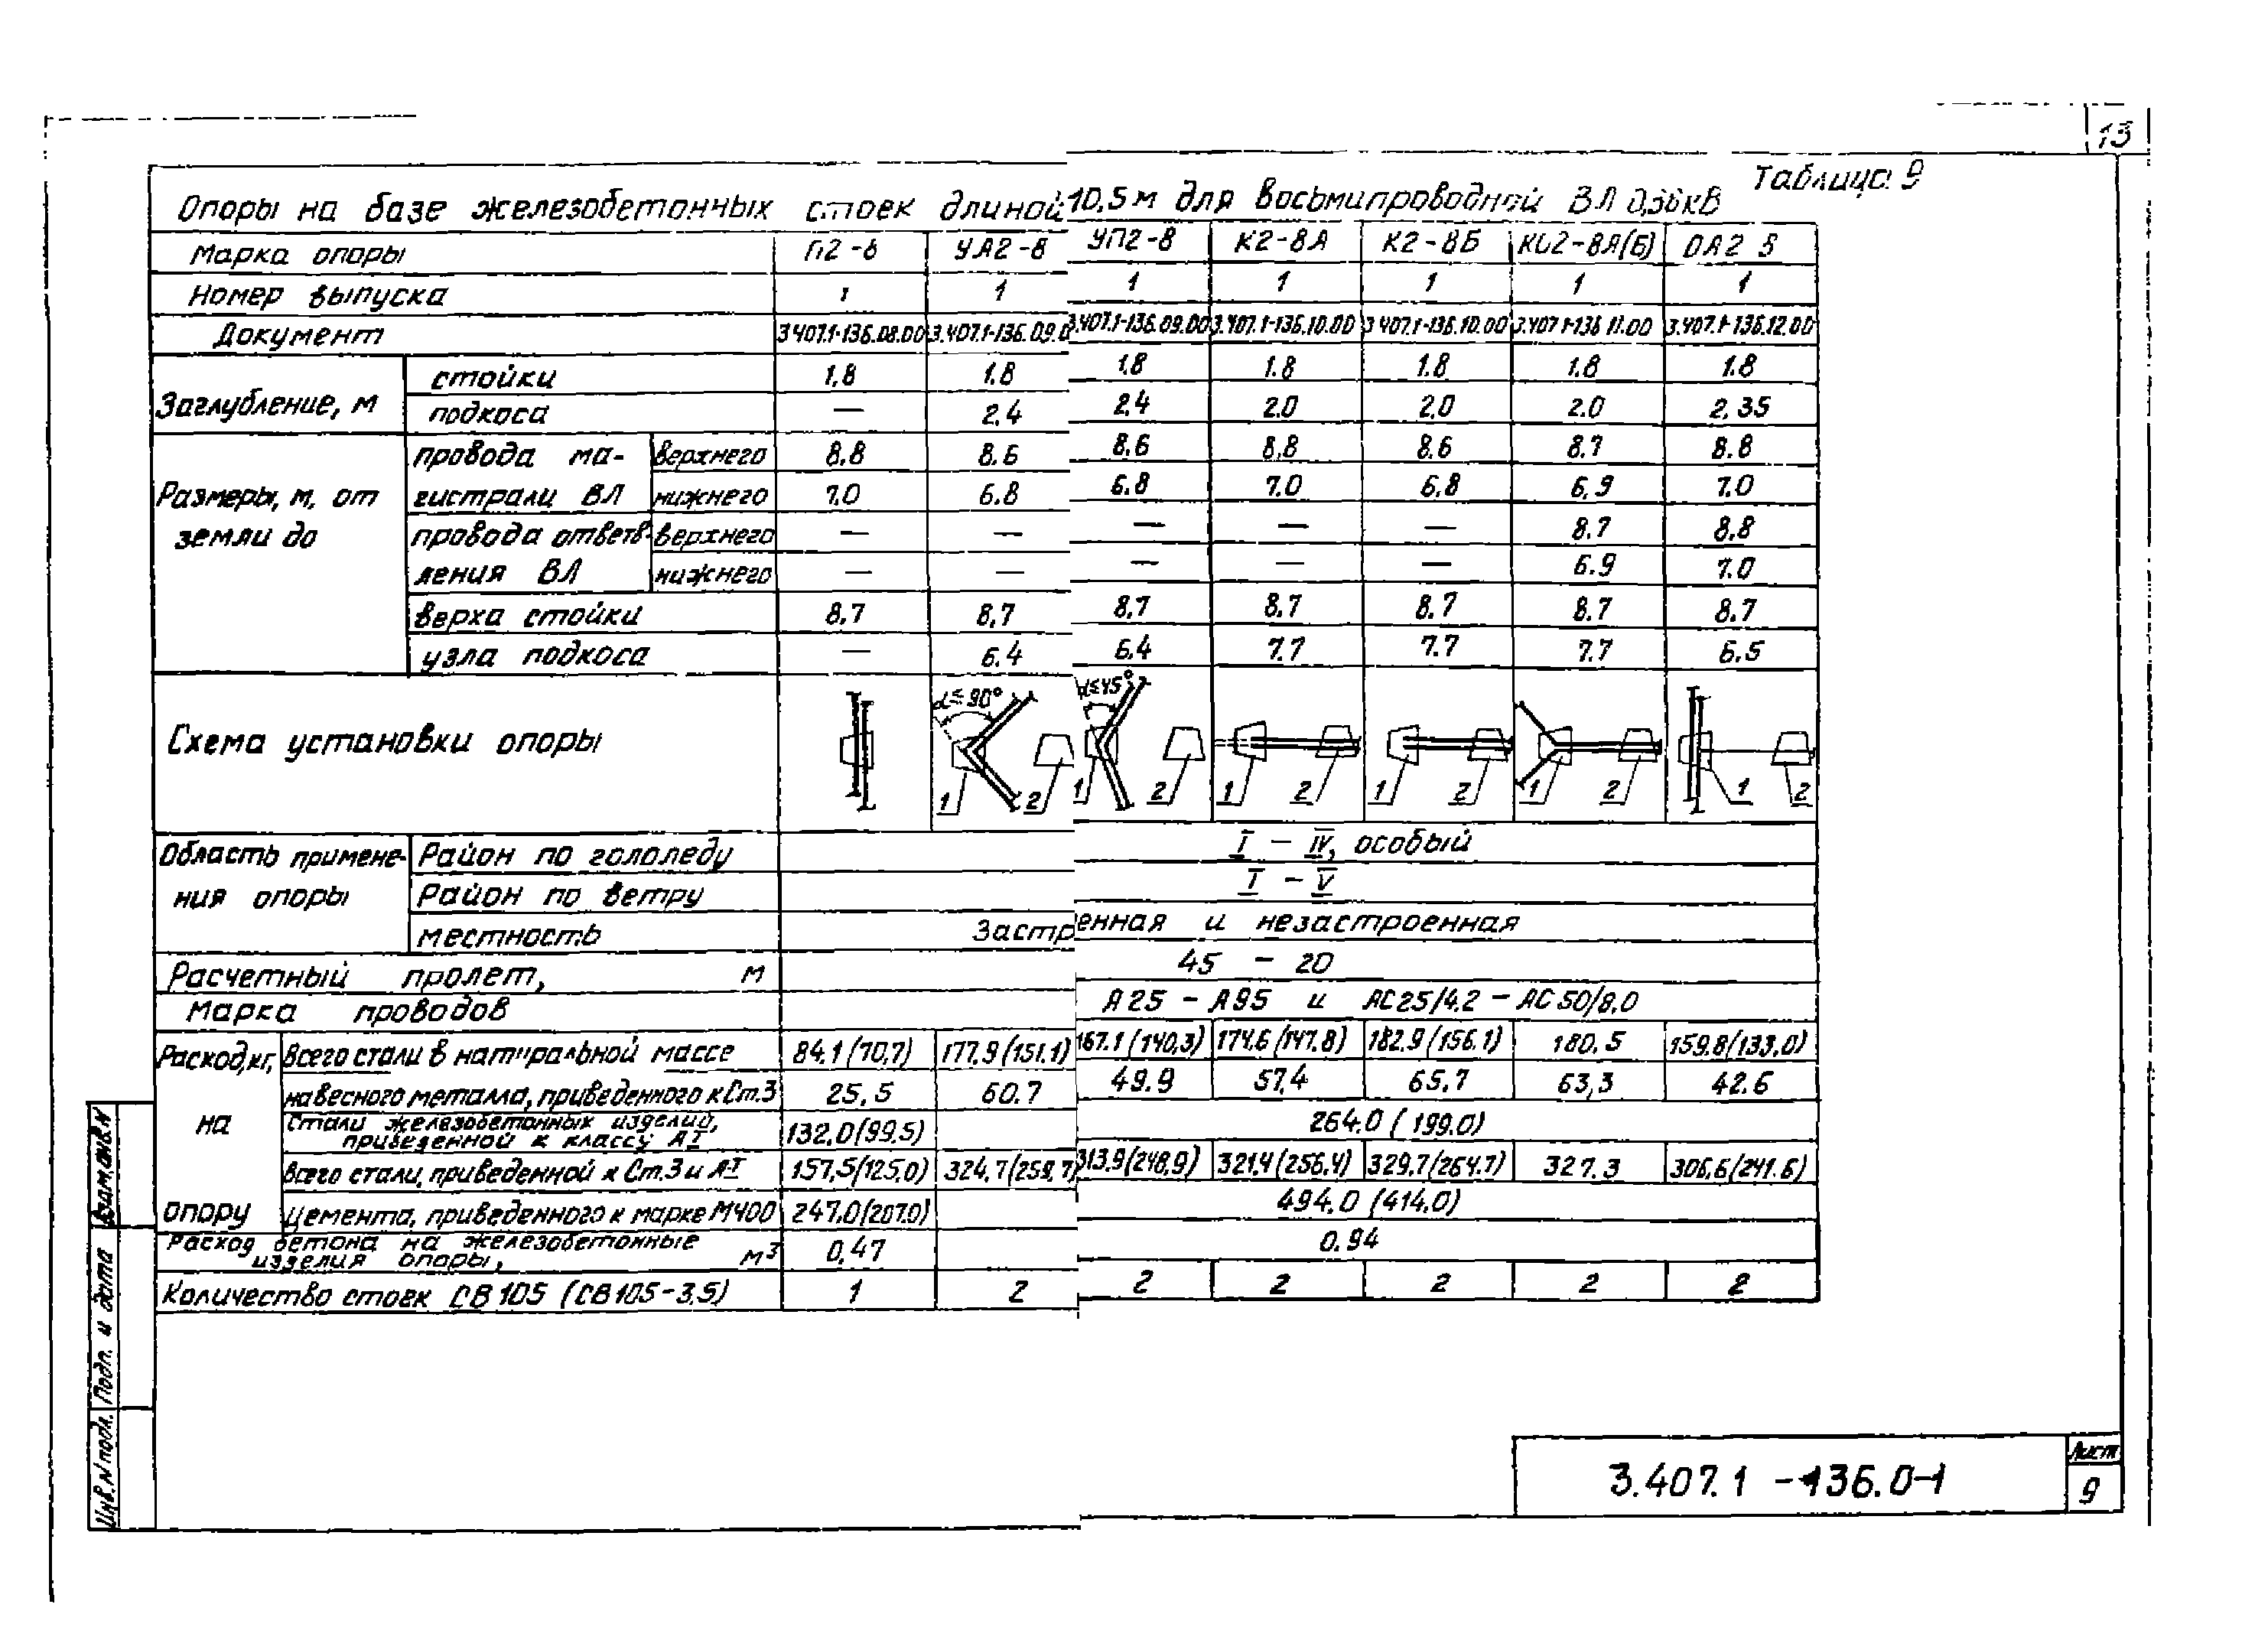 13
Таблица 9
Опоры на базе железобетонных стоек длиной 10,5м для восьмипроводной ВЛ 0,38кВ
Марка опоры П2-8 УА2-8 УП2-8 К2-8А К2-8Б КО2-8А(Б) ОА2 8
Номер выпуска 1 1 1 1 1 1 1
Документ 3407.1-136.08.00 3.407.1-136.09.0 3.407.1-136.09.00 3.407.1-136.10.00 3407.1-136.10.00 3.407 1-136 11.00 3.407.1-136.12.00
Заглубление, м стойки 1,8 1.8 1.8 1.8 1.8 1.8 1.8
подкоса — 2.4 2.4 2.0 2.0 2.0 2.35
Размеры, м, от земли до провода магистрали ВЛ верхнего 8,8 8.6 8.6 8,8 8.6 8.7 8.8
нижнего 7.0 6.8 6.8 7.0 6.8 6.9 7.0
провода ответвления ВЛ верхнего — — — — — 8.7 8,8
нижнего — — — — — 6.9 7.0
верха стойки 8,7 8,7 8,7 8,7 8.7 8.7 8.7
узла подкоса — 6.4 6.4 7.7 7.7 7.7 6.5
Схема установки опоры
α≤90° α≤45°
1 2 1 2 1 2 1 2 1 2 1 2
Область применения опоры Район по гололеду I – IV, особый
Район по ветру I – V
местность Застр енная и незастроенная
Расчетный пролет, м 45 – 20
Марка проводов А25 – А95 и АС25/4.2 – АС50/8.0
Расход, кг, на опору Всего стали в натуральной массе 84.1(70,7) 177.9(151.1) 167.1(140,3) 174.6(147.8) 182.9(156.1) 180.5 159.8(133,0)
навесного металла, приведенного к Ст.3 25,5 60.7 49.9 57,4 65.7 63,3 42.6
Стали железобетонных изделий, приведенной к классу АI 132,0(99,5) 264.0 (199.0)
всего стали, приведенной к Ст.3 и АI 157,5(125,0) 324,7(259,7) 313.9(248,9) 321.4(256,4) 329.7(264.7) 327.3 306,6(241.6)
Цемента, приведенного к марке М400 247.0(207.0) 494.0 (414.0)
Расход бетона на железобетонные изделия опоры, м³ 0,47 0.94
Количество стоек СВ105 (СВ105-3,5) 1 2 2 2 2 2 2
Взам.инв.N
Подп. и дата
Инв.N подл.
3.407.1 -136.0-1
Лист
9